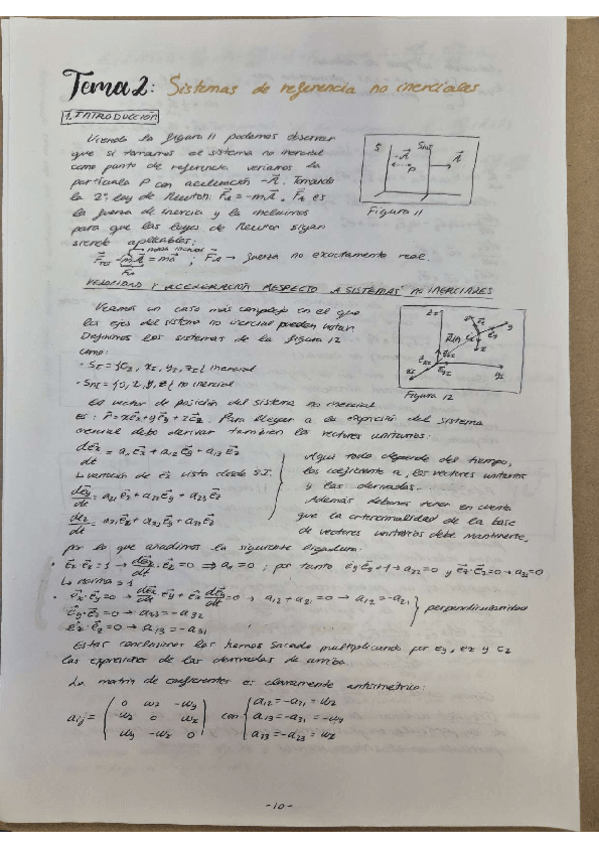 Tema 2: Sistemas de referencia no inerciales
1. INTRODUCCIÓN
Viendo la figura 11 podemos observar
que si tomamos el sistema no inercial
como punto de referencia veríamos la
partícula P con aceleración -A⃗. Tomando
la 2ª Ley de Newton: F⃗_A = -mA⃗. F_A es
la fuerza de inercia y la incluimos
para que las leyes de Newton sigan
siendo aplicables:
masa inercial
F⃗ - mA⃗ = ma⃗ ; F_A → fuerza no exactamente real.
F_A
S
-A⃗
P
A⃗
Figura 11
VELOCIDAD Y ACELERACIÓN RESPECTO A SISTEMAS NO INERCIALES
Veamos un caso más complejo en el que
los ejes del sistema no inercial pueden rotar.
Definimos los sistemas de la figura 12
como:
inercial
no inercial
Figura 12
El vector de posición del sistema no inercial
es: r⃗ = xe⃗x + ye⃗y + ze⃗z. Para llegar a la expresión del sistema
inercial debo derivar también los vectores unitarios:
de⃗x/dt = a₁₁e⃗x + a₁₂e⃗y + a₁₃e⃗z
↳ variación de e⃗x vista desde S.I.
de⃗y/dt = a₂₁e⃗x + a₂₂e⃗y + a₂₃e⃗z
de⃗z/dt = a₃₁e⃗x + a₃₂e⃗y + a₃₃e⃗z
Aquí todo depende del tiempo,
los coeficiente a, los vectores unitarios
y las derivadas.
Además debemos tener en cuenta
que la ortonormalidad de la base
de vectores unitarios debe mantenerse,
por lo que añadimos la siguiente ligadura:
• e⃗x·e⃗x = 1 → de⃗x/dt · e⃗x = 0 ⇒ a₁₁ = 0 ; por tanto e⃗y·e⃗y = 1 → a₂₂ = 0 y e⃗z·e⃗z = 0 → a₃₃ = 0
↳ norma = 1
• e⃗x·e⃗y = 0 → de⃗x/dt · e⃗y + e⃗x de⃗y/dt = 0 → a₁₂ + a₂₁ = 0 → a₁₂ = -a₂₁
e⃗y·e⃗z = 0 → a₂₃ = -a₃₂
perpendicularidad
e⃗x·e⃗z = 0 → a₁₃ = -a₃₁
Estas conclusiones las hemos sacado multiplicando por ey, ex y ez
las expresiones de las derivadas de arriba.
La matriz de coeficientes es claramente antisimétrica:
aij = ( 0 wz -wy ; -wz 0 wx ; wy -wx 0 ) con { a₁₂ = -a₂₁ = wz
a₁₃ = -a₃₁ = -wy
a₂₃ = -a₂₃ = wx
-10-